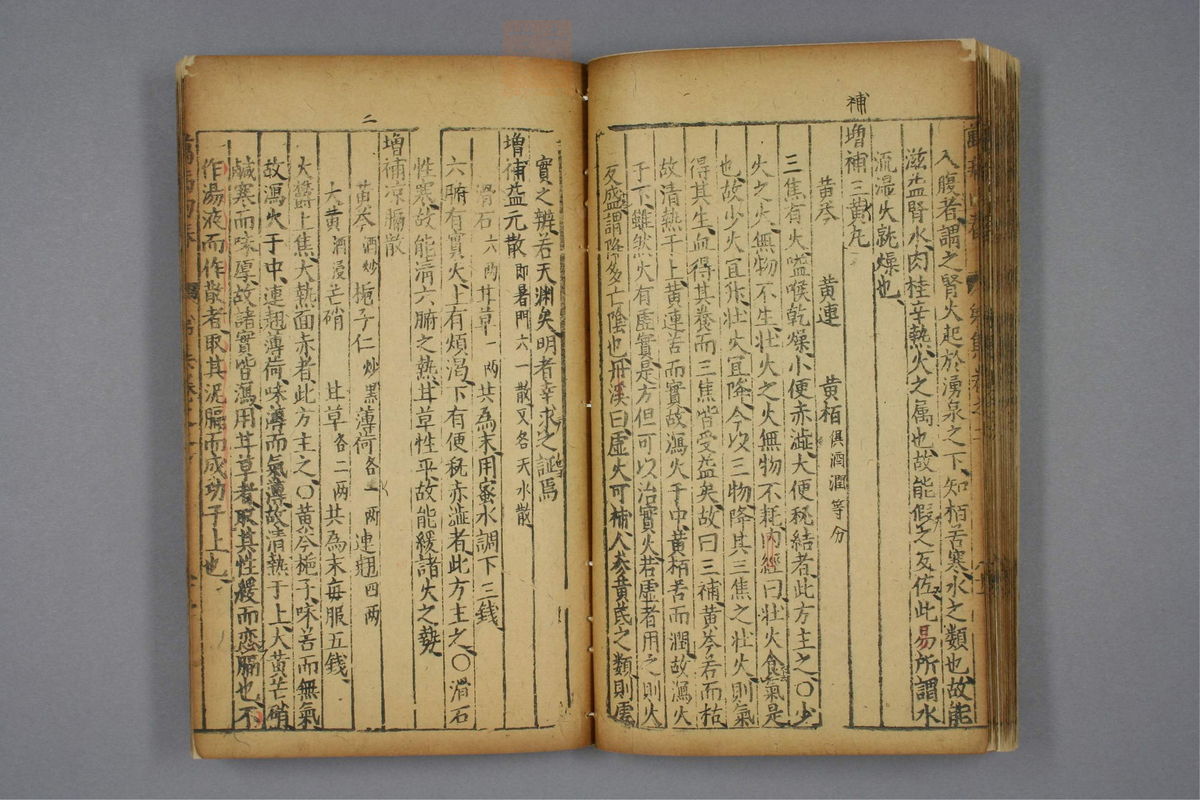 補
入腹者謂之腎火起於湧泉之下知栢苦寒水之類也故能
滋益腎水肉桂辛熱火之属也故能假之反佐此易所謂水
流濕火就燥也
增補三黄丸
黄芩 黄連 黄栢俱酒潤等分
三焦有火嗌喉乾燥小便赤澁大便秘結者此方主之○少
火之火無物不生壮火之火無物不耗内經曰壮火食氣是
也故少火宜升壮火宜降今以三物降其三焦之壮火則氣
得其生血得其養而三焦皆受益矣故曰三補黄芩苦而枯
故清熱于上黄連苦而實故瀉火于中黄栢苦而潤故瀉火
于下雖然火有虛實是方但可以治實火若虛者用之則火
反盛謂降多亡陰也丹溪曰虛火可補人參黄芪之類則虛
實之辨若天渊矣明者幸求之
增補益元散即暑門六一散又名天水散
滑石六兩甘草一兩共為末用蜜水調下三錢
六腑有實火上有煩渴下有便秘赤澁者此方主之○滑石
性寒故能清六腑之熱甘草性平故能緩諸火之勢
二
增補凉膈散
黄芩酒炒梔子仁炒黑薄荷各一兩連翹四兩
大黄酒浸芒硝 甘草各二兩共為末每服五錢
火鬱上焦大熱面赤者此方主之○黄芩梔子味苦而無氣
故瀉火于中連翹薄荷味薄而氣薄故清熱于上大黄芒硝
鹹寒而味厚故諸實皆瀉用甘草者取其性緩而恋膈也不
作湯液而作散者取其泥膈而成功于上也